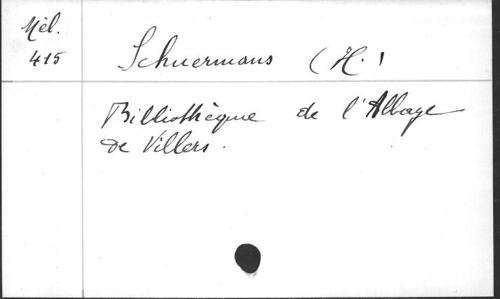 Mél.
415
Schuermans (H.)
Bibliothèque de l'Abbaye
de Villers.